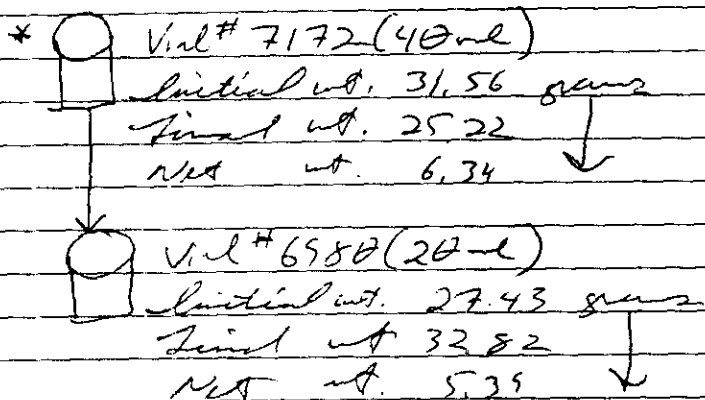 * Vial # 7172 (40 ml)
Initial wt. 31.56 grams
Final wt. 25.22
Net wt. 6.34
Vial # 6980 (20 ml)
Initial wt. 27.43 grams
Final wt 32.82
Net wt. 5.39